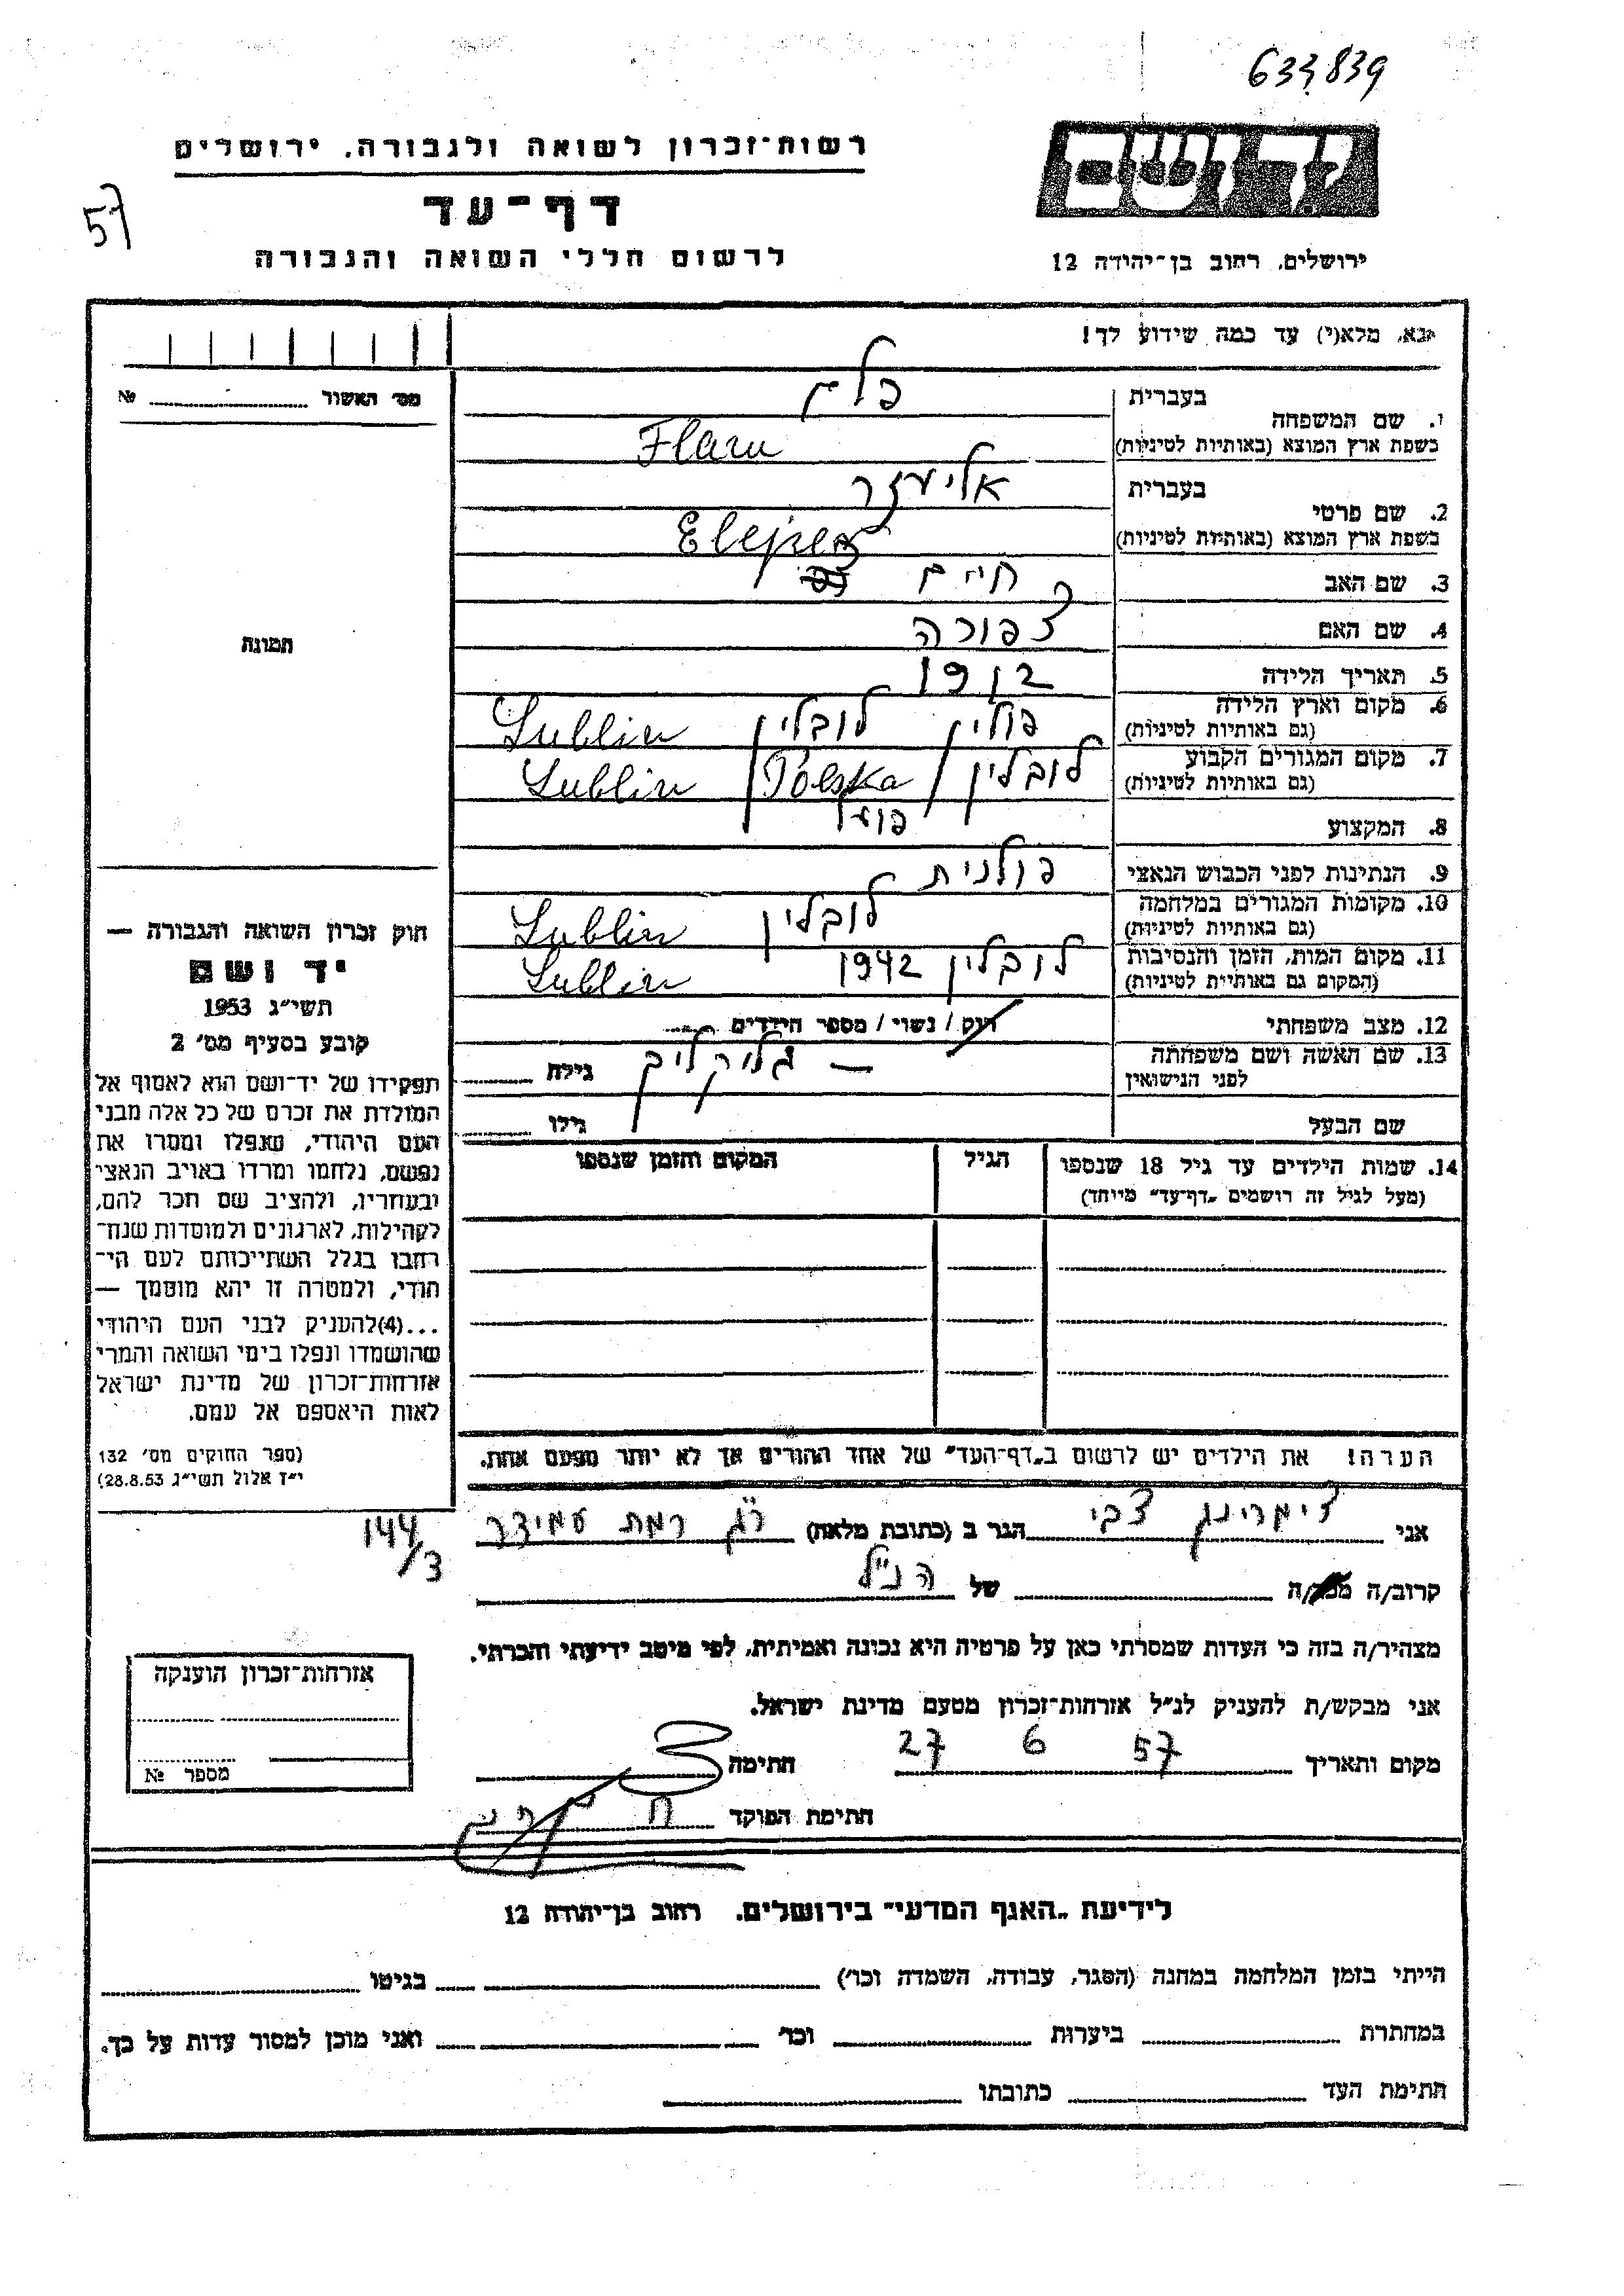 633,839
רשות־זכרון לשואה ולגבורה, ירושלים
דף־עד
57
לרשום חללי השואה והגבורה
ירושלים, רחוב בן־יהודה 12
נא, מלא(י) עד כמה שידוע לך!
מס׳ האשור № 
1. שם המשפחה
בעברית
פלם
בשפת ארץ המוצא (באותיות לטיניות)
Flam
2. שם פרטי
בעברית
אליעזר
בשפת ארץ המוצא (באותיות לטיניות)
3. שם האב חיים
4. שם האם צפורה
תמונה
5. תאריך הלידה 1912
6. מקום וארץ הלידה פולין / לובלין Lublin
(גם באותיות לטיניות)
7. מקום המגורים הקבוע לובלין / Polska / Lublin
(גם באותיות לטיניות)
8. המקצוע פועל
9. הנתינות לפני הכבוש הנאצי פולנית
10. מקומות המגורים במלחמה לובלין Lublin
(גם באותיות לטיניות)
11. מקום המות, הזמן והנסיבות לובלין 1942 Lublin
(המקום גם באותיות לטיניות)
12. מצב משפחתי רווק / נשוי / מספר הילדים
13. שם האשה ושם משפחתה — גילה
לפני הנישואין
שם הבעל גילו
חוק זכרון השואה והגבורה —
יד ושם
תשי״ג 1953
קובע בסעיף מס׳ 2
תפקידו של יד־ושם הוא לאסוף אל
המולדת את זכרם של כל אלה מבני
העם היהודי, שנפלו ומסרו את
נפשם, נלחמו ומרדו באויב הנאצי
ובעוזריו, ולהציב שם וזכר להם,
לקהילות, לארגונים ולמוסדות שנח־
רחבו בגלל השתייכותם לעם הי־
הודי, ולמטרה זו יהא מוסמך —
...(4)להעניק לבני העם היהודי
שהושמדו ונפלו בימי השואה והמרי
אזרחות־זכרון של מדינת ישראל
לאות היאספם אל עמם.
(ספר החוקים מס׳ 132
י״ז אלול תשי״ג 28.8.53)
14. שמות הילדים עד גיל 18 שנספו הגיל המקום והזמן שנספו
(מעל לגיל זה רושמים „דף־עד״ מיוחד)
הערה! את הילדים יש לרשום ב„דף־העד״ של אחד ההורים אך לא יותר מפעם אחת.
אני צימרינג צבי הגר ב (כתובת מלאה) ר״ג רמת עמידר 144/3
קרוב/ה של הנ״ל
מצהיר/ה בזה כי העדות שמסרתי כאן על פרטיה היא נכונה ואמיתית, לפי מיטב ידיעתי והכרתי.
אני מבקש/ת להעניק לנ״ל אזרחות־זכרון מטעם מדינת ישראל.
מקום ותאריך 27 6 57 חתימה
חתימת הפוקד
אזרחות־זכרון הוענקה
מספר №
לידיעת „האגף המדעי״ בירושלים, רחוב בן־יהודה 12
הייתי בזמן המלחמה במחנה (הסגר, עבודה, השמדה וכו׳) בגיטו
במחתרת ביערות וכו׳ ואני מוכן למסור עדות על כך.
חתימת העד כתובתו